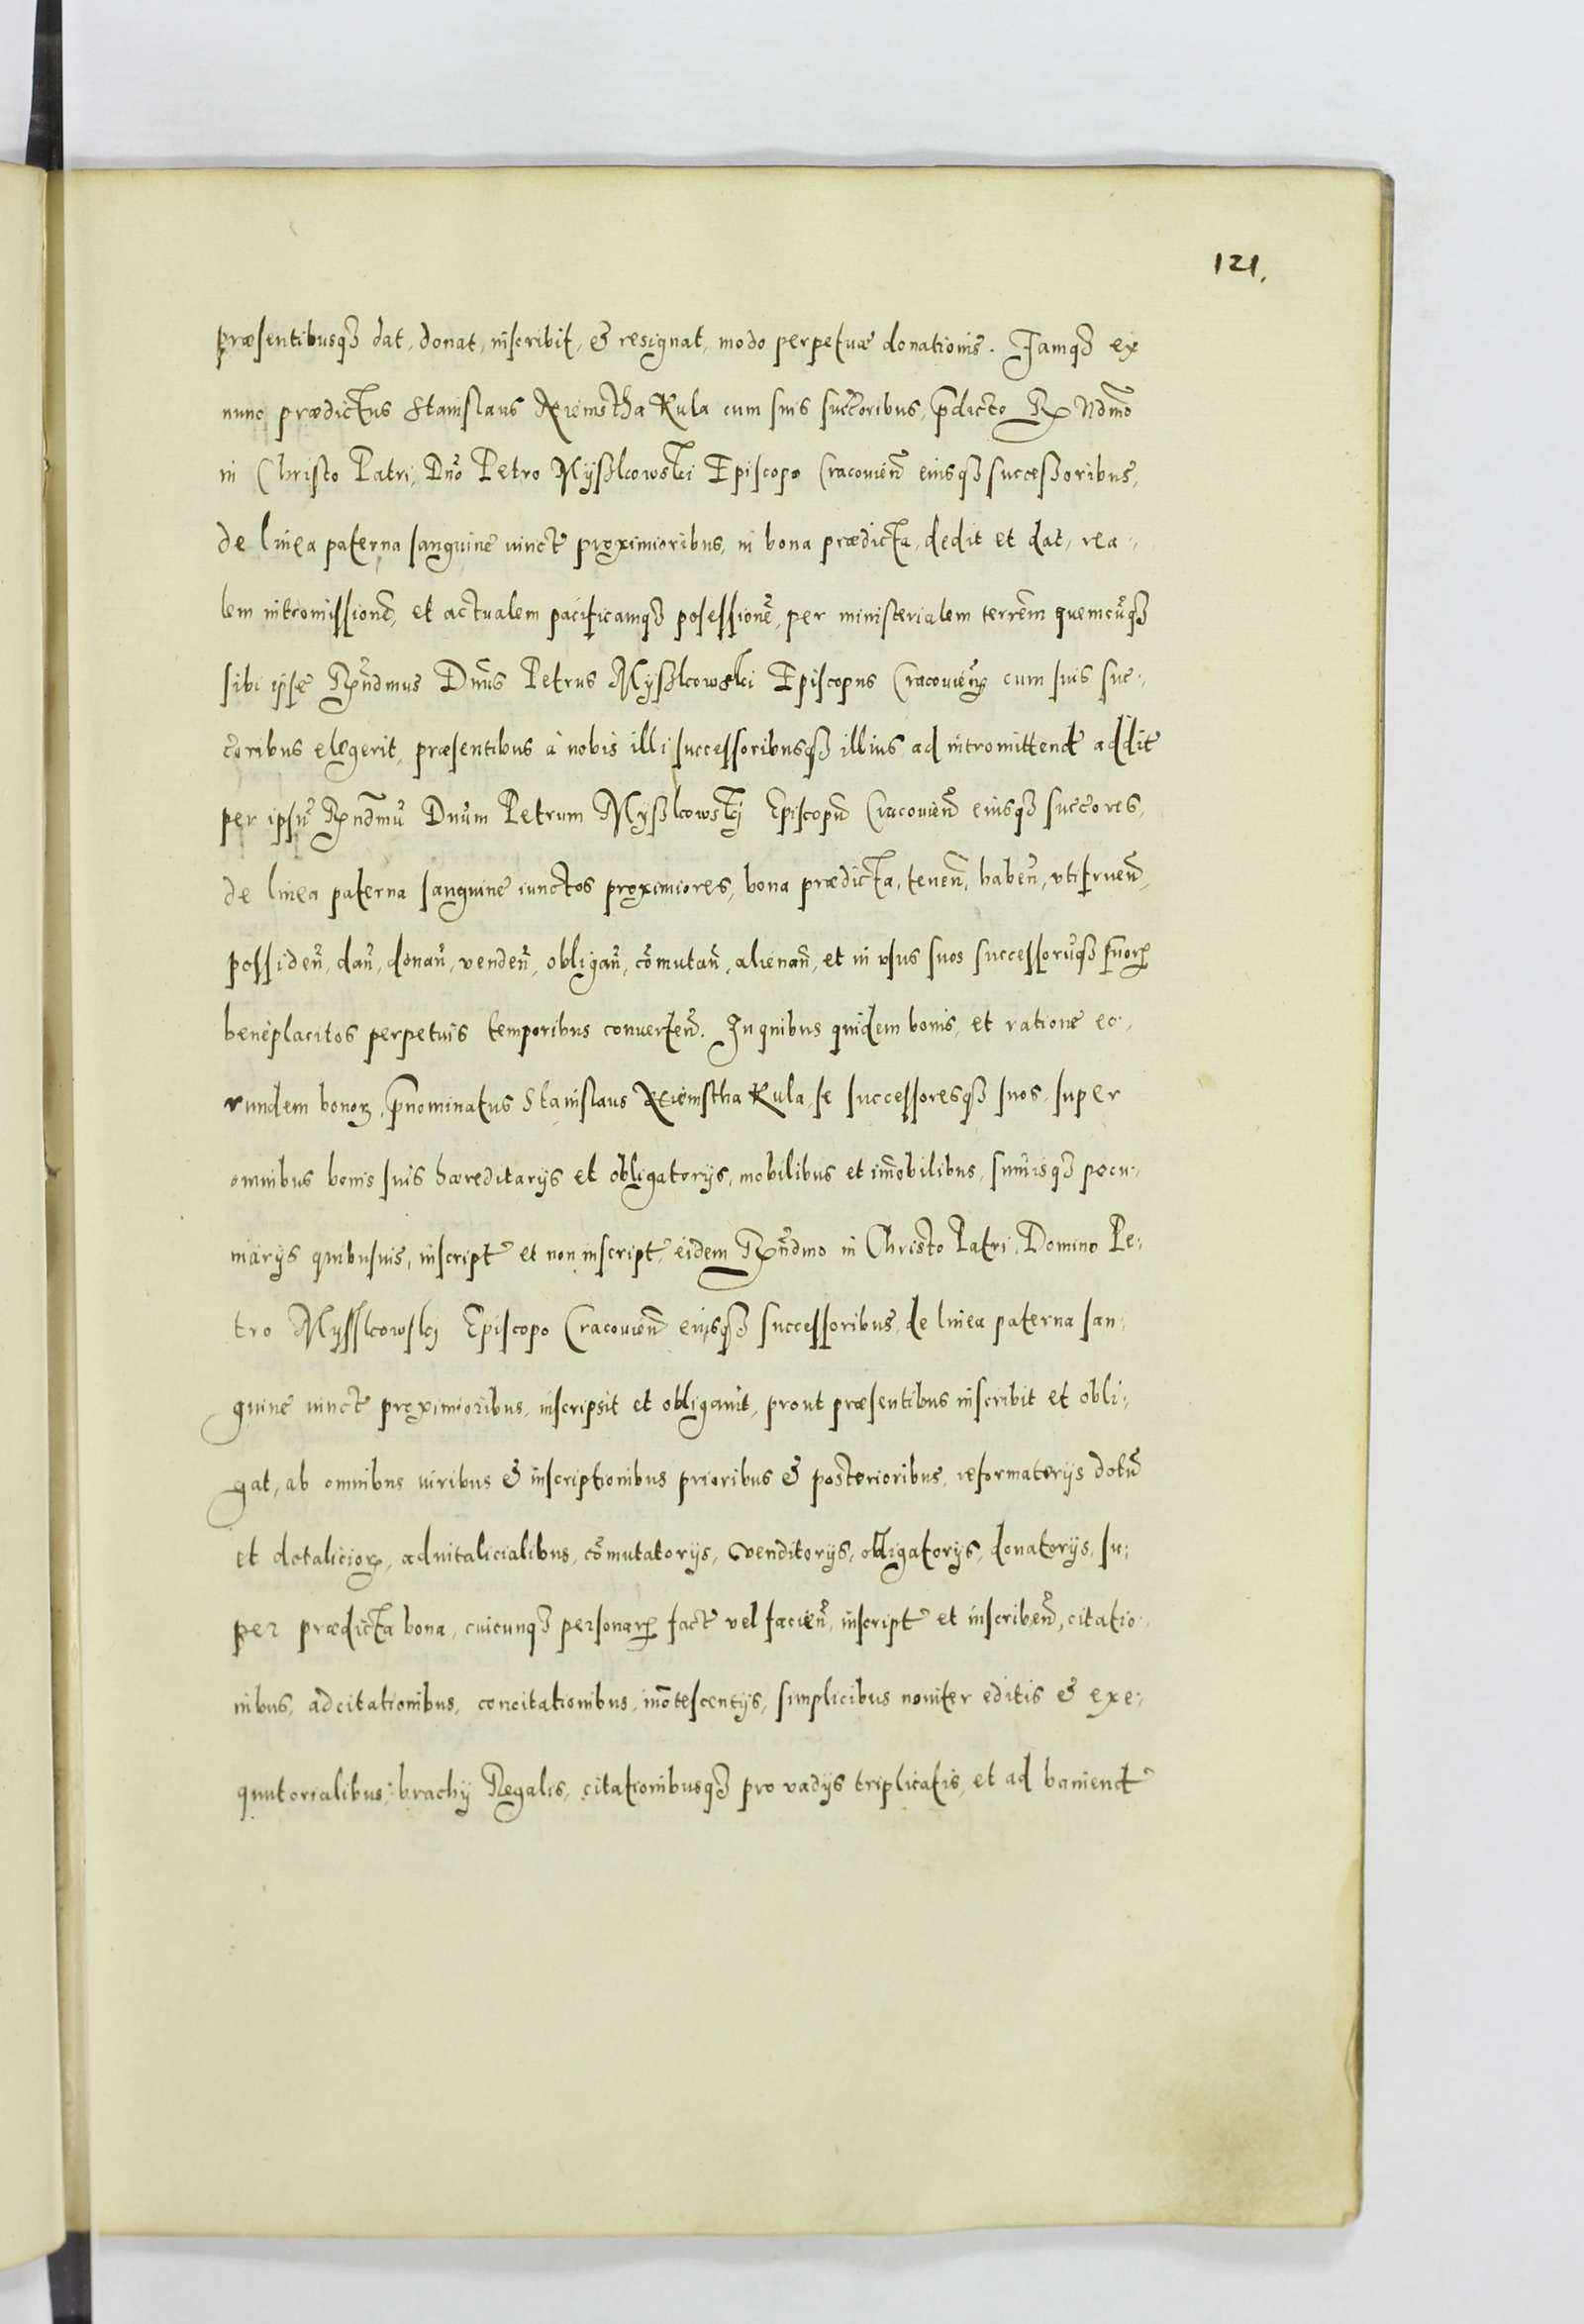 121.
præsentibusqꝫ dat, donat, inscribit, & resignat, modo perpetuæ donationis. Jamqꝫ ex
nunc prædictus Stanislaus Xiemstha Kula cum suis succ̃oribus, p̃dicto Rx̃ndmo
in Christo Patri, Dño Petro Myßkowski Episcopo Cracouieñ eiusqꝫ succeßoribus,
de linea paterna sanguine iunct̃ proximioribus, in bona prædicta, dedit et dat, rea-
lem intromissionẽ, et actualem pacificamqꝫ posessionẽ, per ministerialem terrẽm quemcũqꝫ
sibi ipse Rx̃ndmus Dñus Petrus Myßkowski Episcopus Cracouieñ cum suis suc-
c̃oribus elegerit, præsentibus à nobis illi successoribusqꝫ illius ad intromittend̃ addit̃
per ipsũ Rx̃ndmũ Dñum Petrum Myßkowskij Episcopũ Cracouieñ eiusqꝫ succ̃ores,
de linea paterna sanguine iunctos proximiores, bona prædicta, teneñ, habeñ, vtifrueñ,
possideñ, dañ, donañ, vendeñ, obligañ, com̃utañ, alienañ, et in vsus suos successorũqꝫ suorꝝ
beneplacitos perpetuis temporibus conuerteñ. In quibus quidem bonis, et ratione eo-
rundem bonorꝝ, p̃nominatus Stanislaus Xiemstha Kula, se successoresqꝫ suos, super
omnibus bonis suis hæreditarijs et obligatorijs, mobilibus et im̃obilibus, sum̃isqꝫ pecu-
niarijs quibusuis, inscript̃ et non inscript̃, eidem Rx̃ndmo in Christo Patri, Domino Pe-
tro Mysskowskij Episcopo Cracouieñ eiusqꝫ successoribus, de linea paterna san-
guine iunct̃ proximioribus, inscripsit et obligauit, prout præsentibus inscribit et obli-
gat, ab omnibus iuribus & inscriptionibus prioribus & posterioribus, reformatorijs dotũ
et dotaliciorꝝ, aduitalicialibus, com̃utatorijs, venditorijs, obligatorijs, donatorijs, su-
per prædicta bona, cuicunqꝫ personarꝝ fact̃ vel facieñ, inscript̃ et inscribeñ, citatio-
nibus, adcitationibus, concitationibus, inõtescentijs, simplicibus nouiter editis & exe-
qutorialibus, brachij Regalis, citationibusqꝫ pro vadijs triplicatis, et ad baniend̃